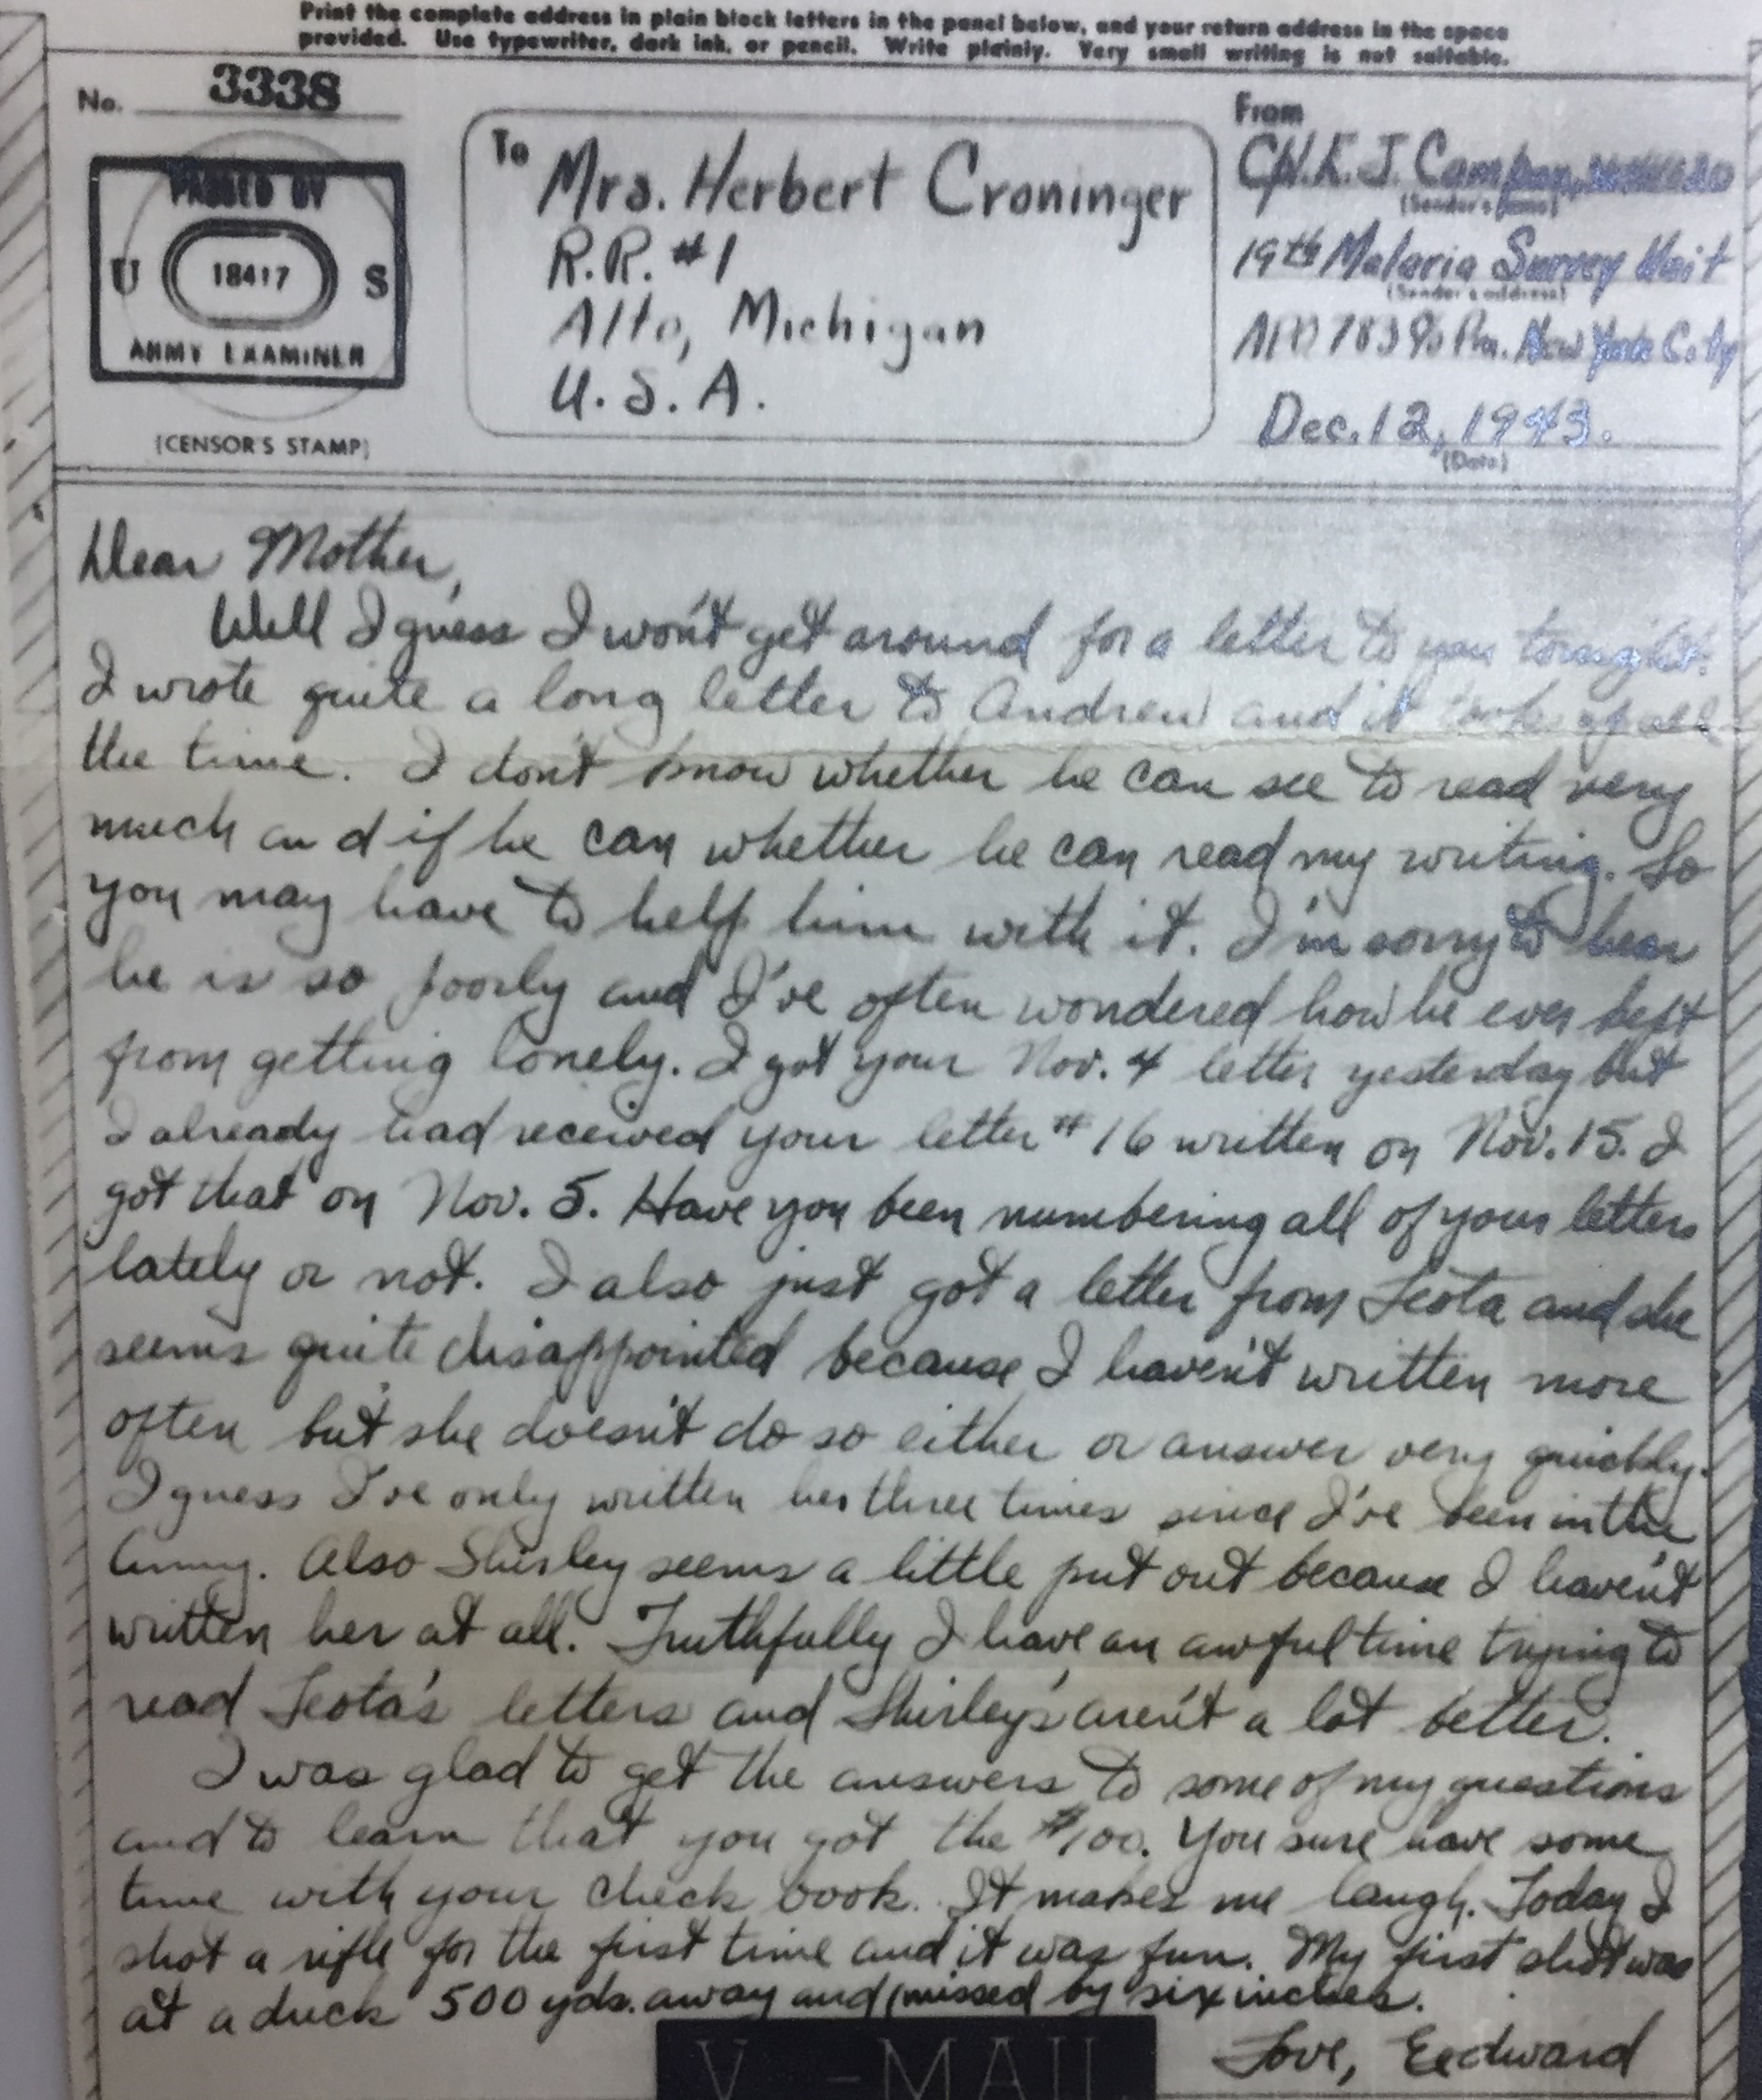 Print the complete address in plain block letters in the panel below, and your return address in the space
provided. Use typewriter, dark ink, or pencil. Write plainly. Very small writing is not suitable.
No. 3338
PASSED BY
U 18417 S
ARMY EXAMINER
(CENSOR'S STAMP)
To Mrs. Herbert Croninger
R.R. #1
Alto, Michigan
U.S.A.
From
J.
(Sender's name)
19th Malaria Survey Unit
(Sender's address)
APO 783 % Pm. New York City
Dec. 12, 1943.
(Date)
Dear Mother,
Well I guess I won't get around for a letter to you tonight.
I wrote quite a long letter to Andrew and it took up all
the time. I don't know whether he can see to read very
much and if he can whether he can read my writing. So
you may have to help him with it. I'm sorry to hear
he is so poorly and I've often wondered how he ever kept
from getting lonely. I got your Nov. 4 letter yesterday but
I already had received your letter #16 written on Nov. 15. I
got that on Nov. 5. Have you been numbering all of your letters
lately or not. I also just got a letter from Leota and she
seems quite disappointed because I haven't written more
often but she doesn't do so either or answer very quickly.
I guess I've only written her three times since I've been in the
Army. Also Shirley seems a little put out because I haven't
written her at all. Truthfully I have an awful time trying to
read Leota's letters and Shirley's aren't a lot better.
I was glad to get the answers to some of my questions
and to learn that you got the $100. You sure have some
time with your check book. It makes me laugh. Today I
shot a rifle for the first time and it was fun. My first shot was
at a duck 500 yds. away and I missed by six inches.
Love, Eedward
V - MAIL